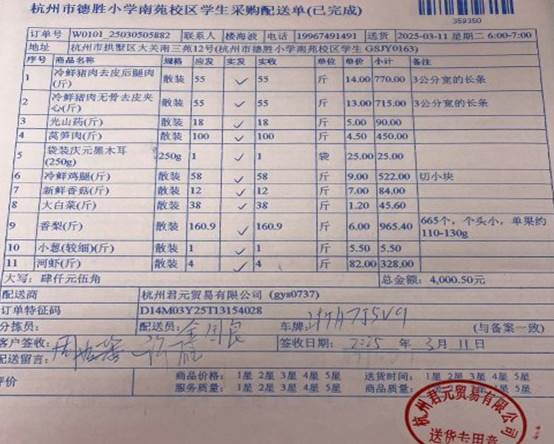 杭州市德胜小学南苑校区学生采购配送单(已完成)
359350
订单号 W0101_25030505882 联系人 楼海波 电话 19967491491 送货 2025-03-11 星期二 6:00-7:00
地址 杭州市拱墅区大关南三苑12号(杭州市德胜小学南苑校区学生 GSJY0163)
序号 商品名称 规格 应发 实发 实收 单位 单价 小计 备注
1 冷鲜猪肉去皮后腿肉(斤) 散装 55 ✓ 55 斤 14.00 770.00 3公分宽的长条
2 冷鲜猪肉无骨去皮夹心(斤) 散装 55 ✓ 55 斤 13.00 715.00 3公分宽的长条
3 光山药(斤) 散装 18 ✓ 18 斤 5.00 90.00
4 莴笋肉(斤) 散装 100 ✓ 100 斤 4.50 450.00
5 袋装庆元黑木耳(250g) 250g 1 ✓ 1 袋 25.00 25.00
6 冷鲜鸡腿(斤) 散装 58 ✓ 58 斤 9.00 522.00 切小块
7 新鲜香菇(斤) 散装 12 ✓ 12 斤 7.00 84.00
8 大白菜(斤) 散装 38 ✓ 38 斤 1.20 45.60
9 香梨(斤) 散装 160.9 ✓ 160.9 斤 6.00 965.40 665个，个头小，单果约110-130g
10 小葱(较细)(斤) 散装 1 ✓ 1 斤 5.50 5.50
11 河虾(斤) 散装 4 ✓ 4 斤 82.00 328.00
大写：肆仟元伍角 总金额：4,000.50元
配送商 杭州君元贸易有限公司 (gys0737)
订单特征码 D14M03Y25T13154028
分拣员： 配送员： 车牌： (与备案一致)
客户签收： 签收日期： 2025 年 3月 11日
配送留言：
评价 商品价格： 1星 2星 3星 4星 5星 送货时间： 1星 2星 3星 4星 5星
服务质量： 1星 2星 3星 4星 5星 商品质量： 1星 2星
杭州君元贸易有限公司
送货专用章